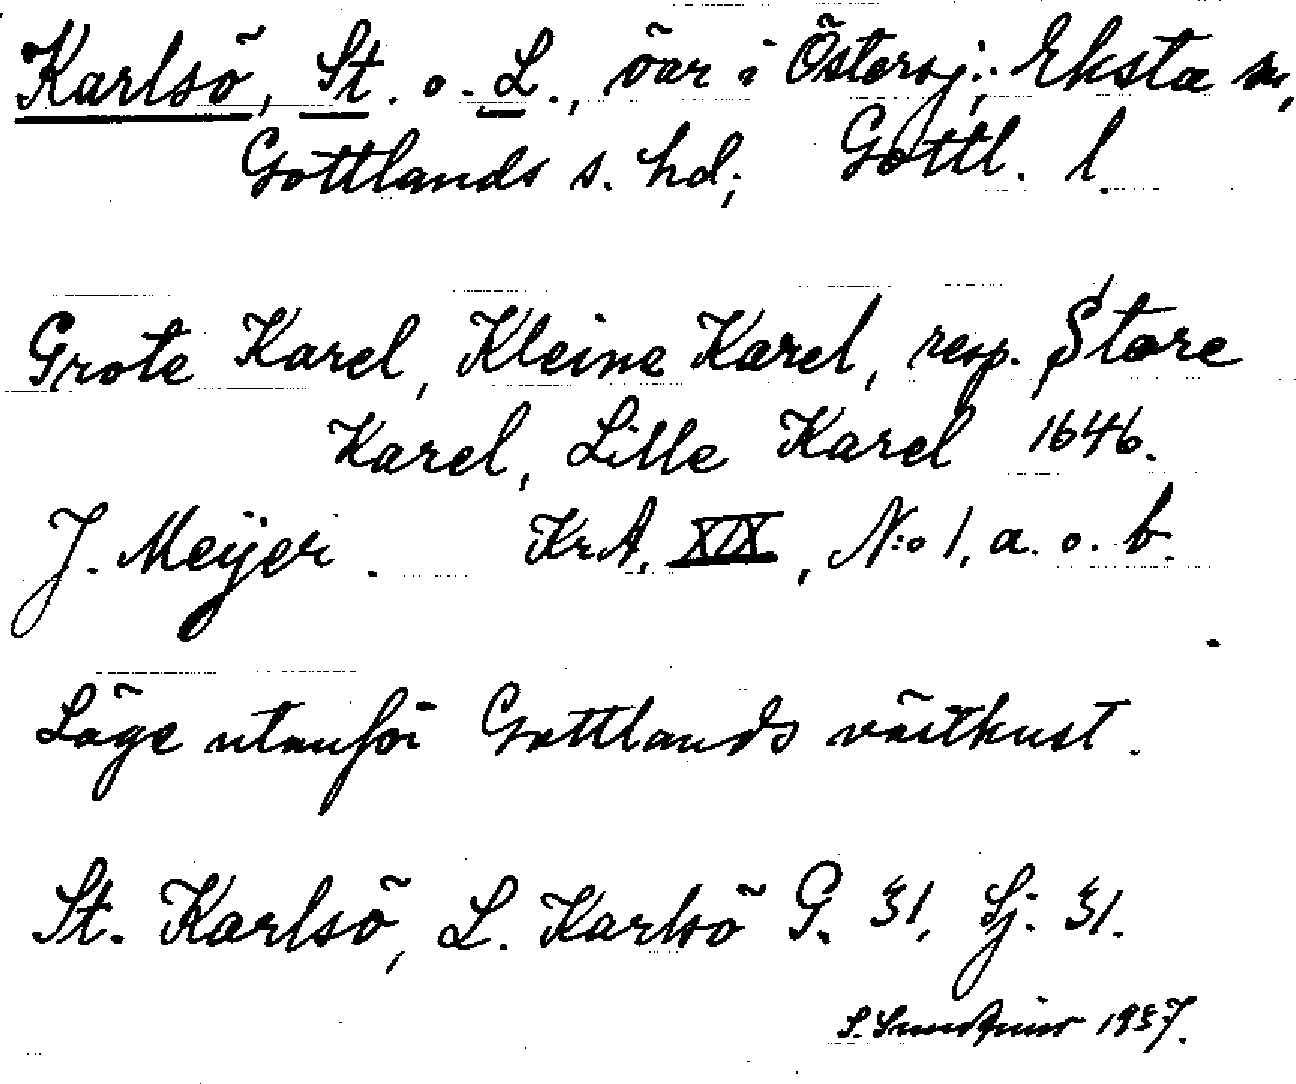 Karlsö, St. o. L., öar i Östersj.; Eksta sn,
Gottlands s. hd; Gottl. l.
Grote Karel, Kleine Karel, resp. Store
Karel, Lille Karel 1646.
J. Meijer. KrA, XIX, N:o 1, a. o. b.
Läge utanför Gottlands västkust.
St. Karlsö, L. Karlsö G. 31, Sj. 31.
S. 1937.